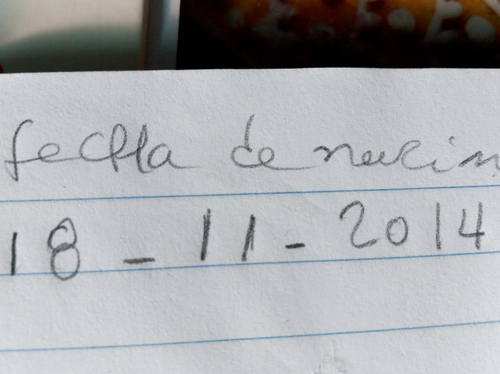 fecha de nacim
18 - 11 - 2014